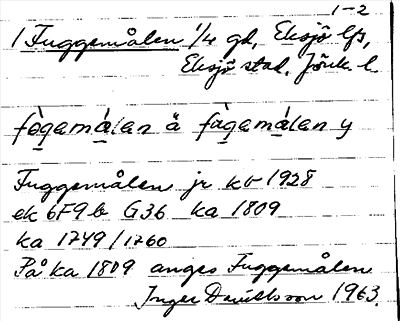 1-2
1 Fuggemålen 1/4 gd, Eksjö lfs,
Eksjö stad, Jönk. l.
fògemá̱lan å fùgemá̱lan y
Fuggemålen jr kb 1928
ek 6F9b G36 ka 1809
ka 1749/1760
På ka 1809 anges Fuggemålen
Inger Danielsson 1963.